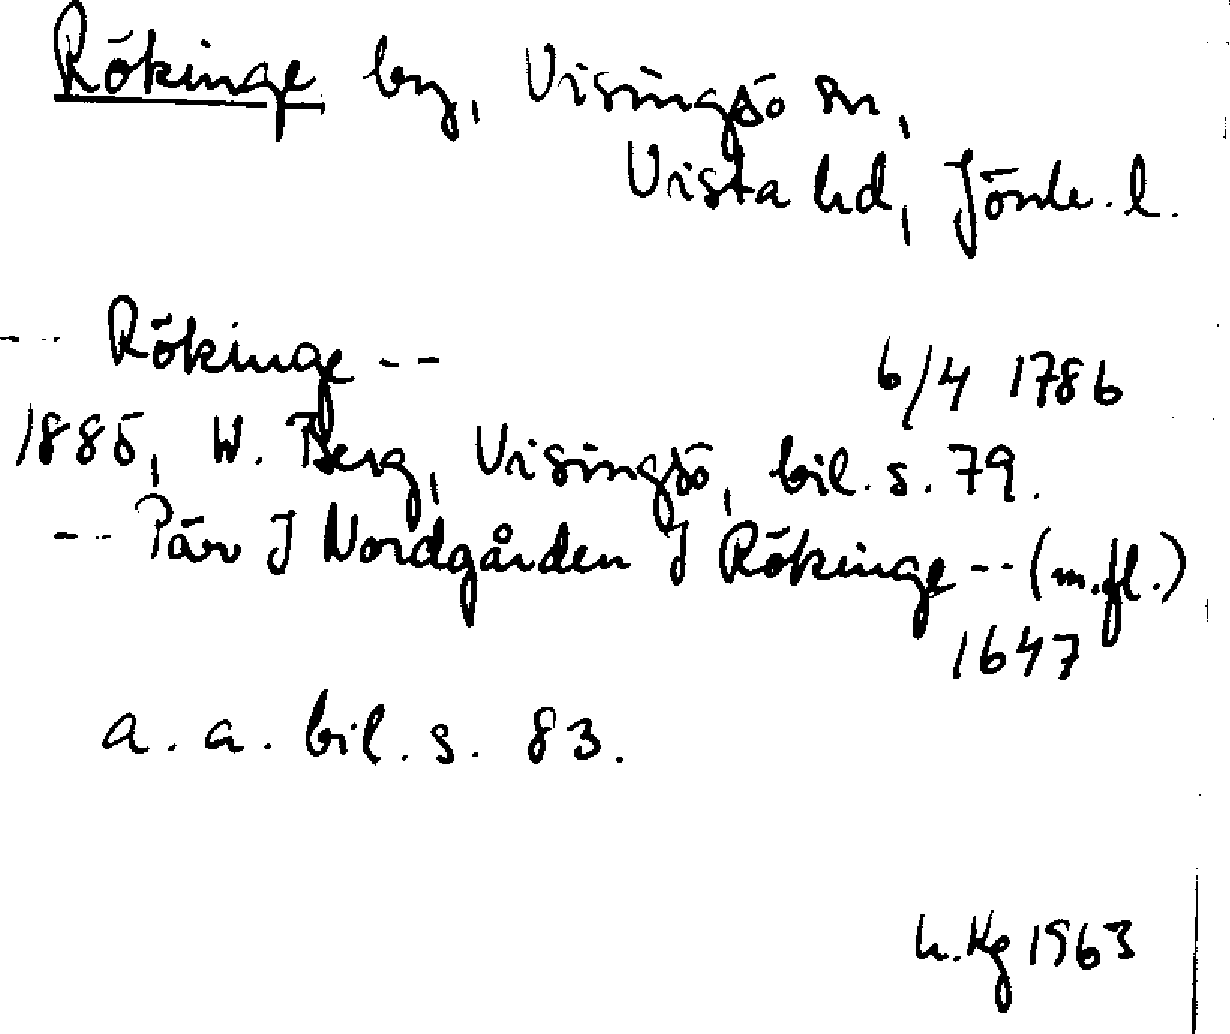 Rökinge by, Visingsö sn,
Vista hd, Jönk. l.
-- Rökinge -- 6/4 1786
1885, W. Berg, Visingsö, bil. s. 79.
-- Pär J Nordgården J Rökinge -- (m.fl.)
1647
a. a. bil. s. 83.
h. Kg 1963